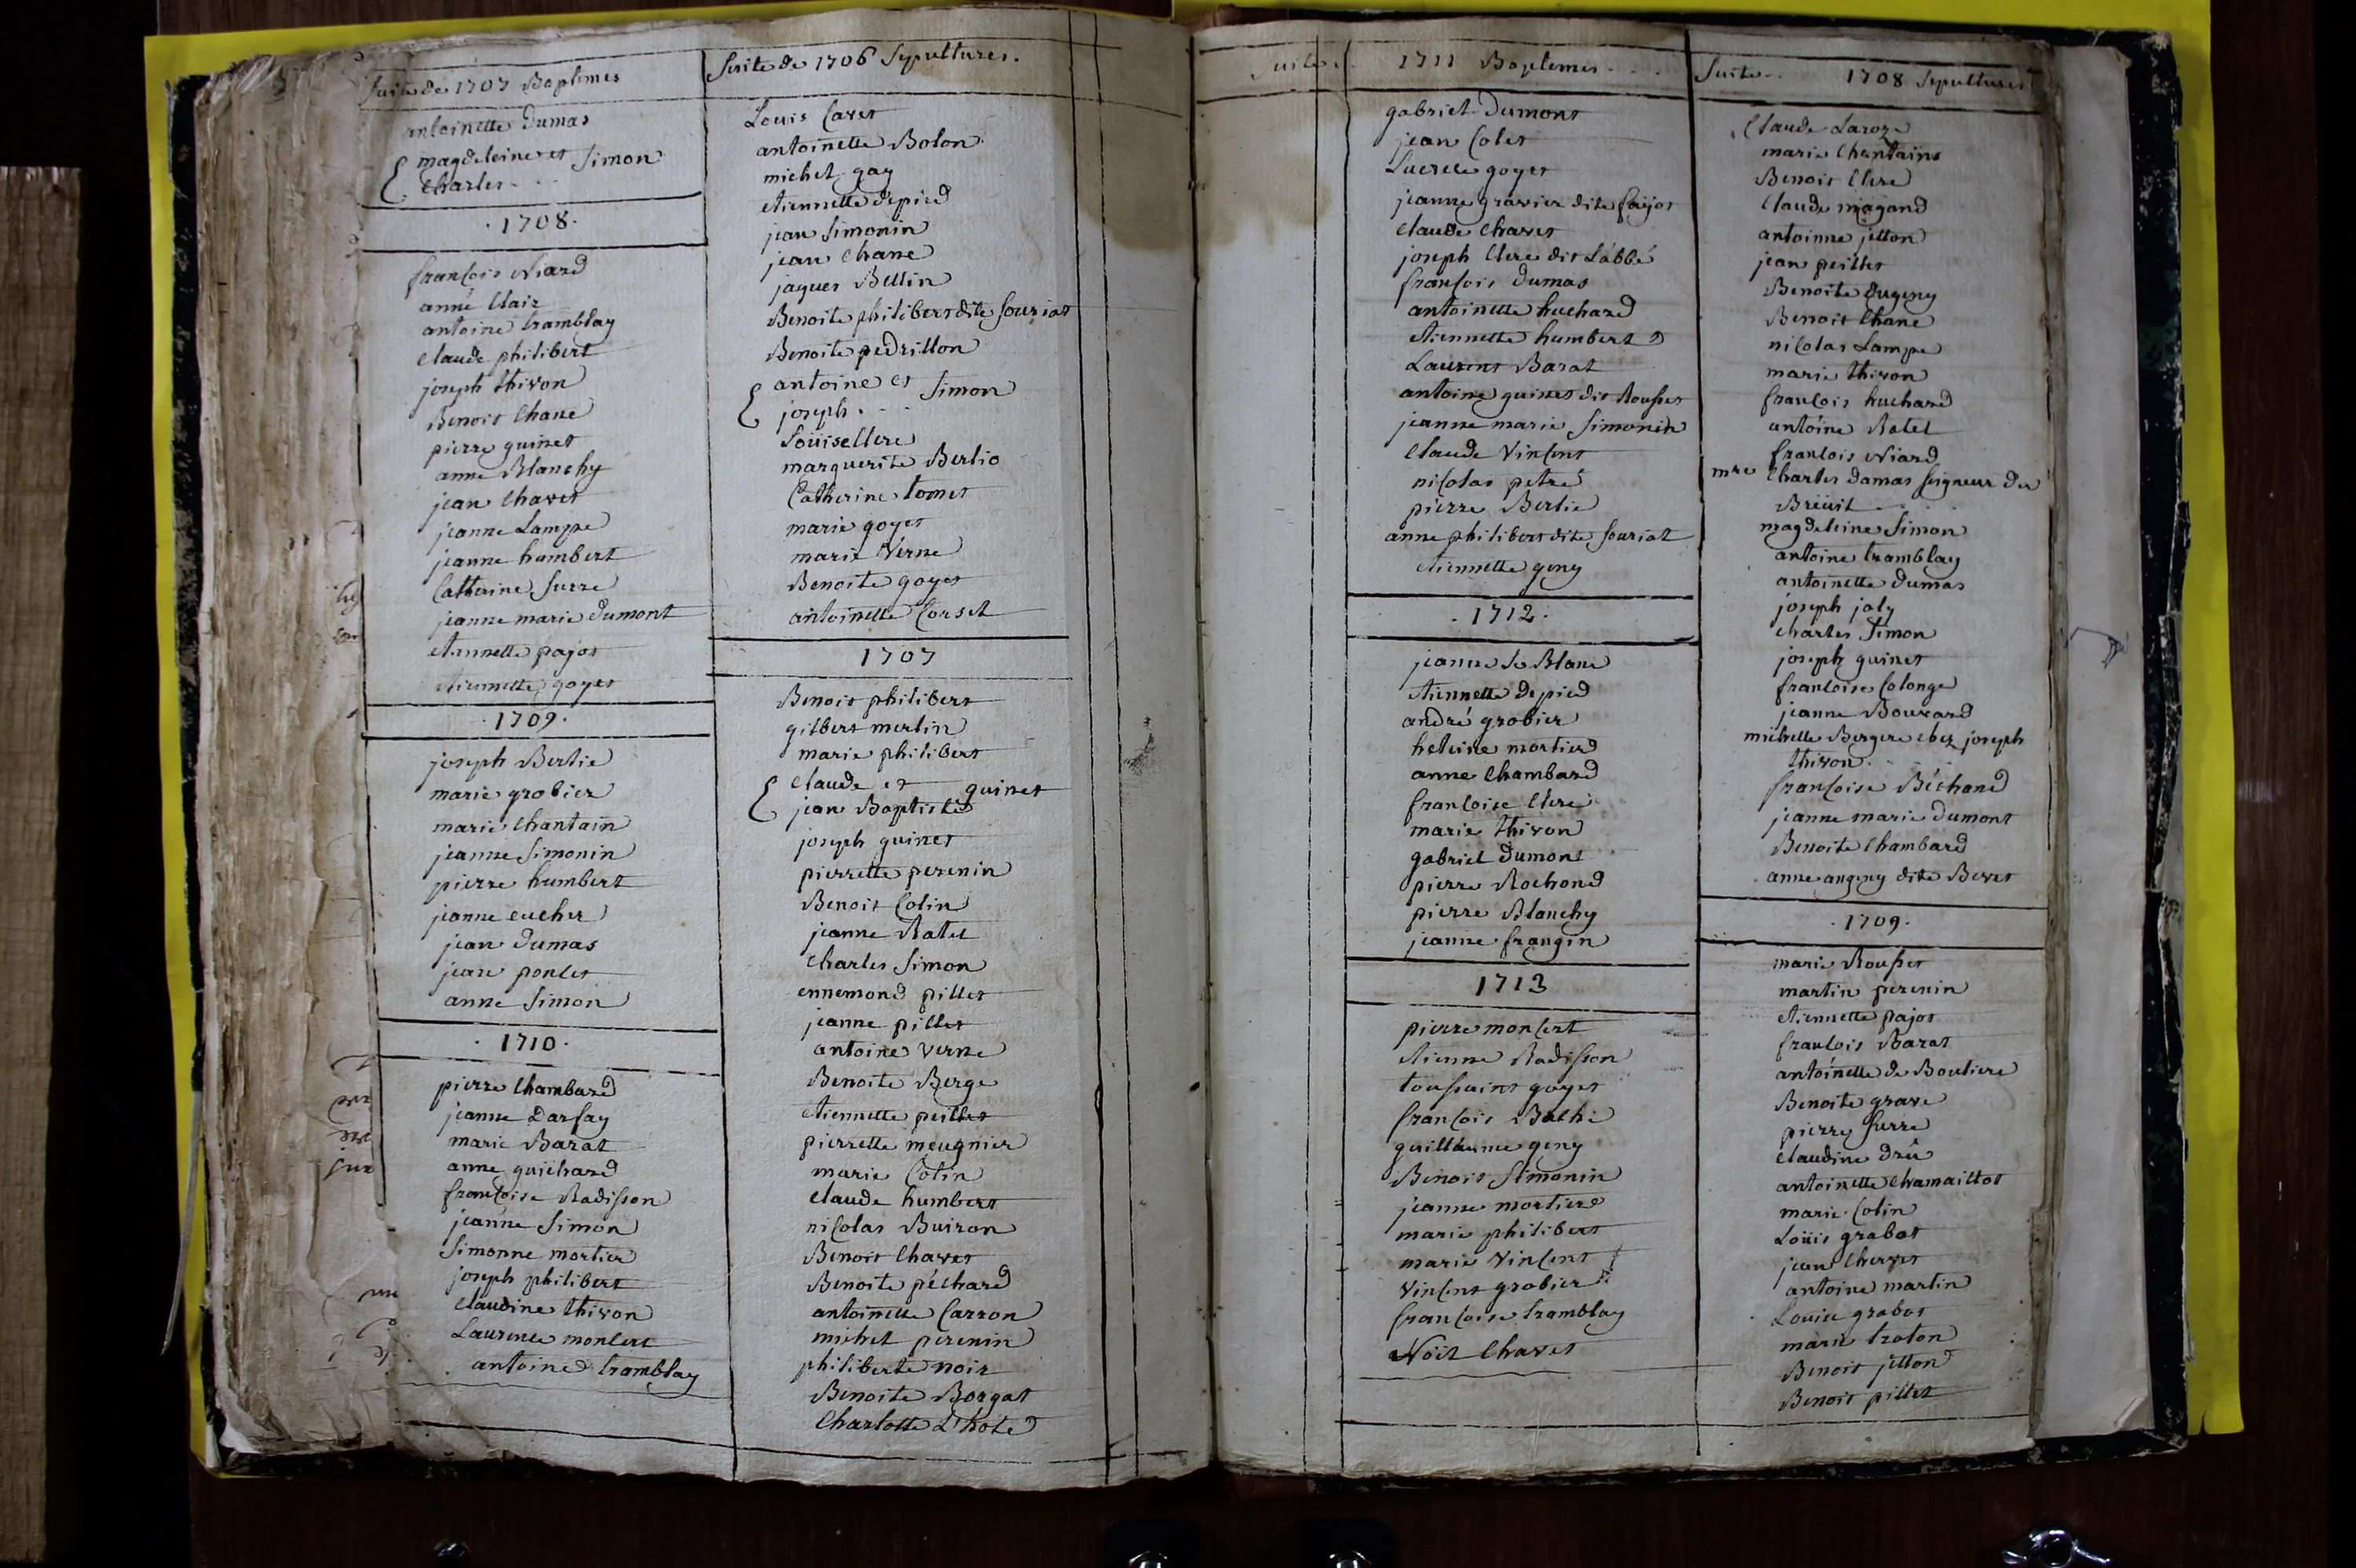 Suite de 1707 Baptemes
antoinette Dumas
magdeleine et Simon
Charles . . .
. 1708 .
françois Niard
anne Clair
antoine tramblay
Claude philibert
joseph thivon
Benoit Chane
pierre guinet
anne Blanchy
jean Chavet
jeanne Lampe
jeanne humbert
Catherine Surre
jeanne marie Dumont
etiennette pajot
etiennette goyet
. 1709 .
joseph Bertie
marie grobier
marie Chantain
jeanne Simonin
pierre humbert
jeanne eucher
jean Dumas
jean poncet
anne Simon
. 1710 .
pierre Chambard
jeanne Darsay
marie Barat
anne guichard
françoise Radisson
jeanne Simon
Simonne mortier
joseph philibert
Claudine thivon
Laurence moncert
antoine tramblay
Suite de 1706 Sepultures.
Louis Cavet
antoinette Bolon
michel gay
etiennette depied
jean Simonin
jean Chane
jaques Bellin
Benoite philibert dite Souriat
Benoite pedrillon
antoine et Simon
joseph . . .
Loüise Clere
marguerite Berlio
Catherine tomet
marie goyet
marie Verne
Benoite goyet
antoinette Corset
1707
Benoit philibert
gilbert merlin
marie philibert
Claude et guinet
jean Baptiste
joseph guinet
pierrette perenin
Benoit Colin
jeanne Ratel
Charles Simon
ennemond pillet
jeanne pillet
antoine Verne
Benoite Berge
etiennette peillet
pierrette meugnier
marie Colin
Claude humbert
nicolas Buiron
Benoit Chavet
Benoite péchard
antoinette Carron
michel perenin
philiberte noir
Benoite Borgat
Charlotte L'hote
Suite. 1711 Baptemes . . .
gabriel Dumont
jean Colet
Lucrece goyet
jeanne gravier dite fayot
Claude Chavet
joseph Clere dit L'abbé
françois Dumas
antoinette huchard
etiennette humbert
Laurent Barat
antoine guinet dit Rousset
jeanne marie Simonin
Claude Vincent
nicolas petré
pierre Berlie
anne philibert dite Souriat
etiennette geny
. 1712 .
jeanne le Blanc
etiennette depied
andré grobier
heleine mortier
anne Chambard
françoise Clere
marie thivon
gabriel Dumont
pierre Rochond
pierre Blanchy
jeanne frangin
1713
pierre moncert
etienne Radisson
toussaint goyet
françois Bathie
guillaume geny
Benoit Simonin
jeanne mortier
marie philibert
marie Vincent
Vincent grobier
françoise tramblay
Nöel Chavet
Suite. 1708 Sepultures
Claude Laroze
marie Chantains
Benoit Clere
Claude magand
antoinne jetton
jean peillet
Benoite Eugeny
Benoit Chane
nicolas Lampe
marie thivon
françois huchard
antoine Ratel
françois Niard
mre Charles Damas Seigneur du
Breüil . . .
magdeleine Simon
antoine tramblay
antoinette Dumas
joseph joly
Charles Simon
joseph guinet
françoise Colonge
jeanne Bouvard
michelle Bergere chez joseph
thivon .
françoise Béchand
jeanne marie Dumont
Benoite Chambard
anne angeny dite Bevet
. 1709 .
marie Rousset
martin perenin
etiennette pajot
françois Barat
antoinette de Boutiere
Benoite grave
pierre Surre
Claudine Dru
antoinette Chamaillot
marie Colin
Loüis grabot
jean Chervet
antoine martin
Louise grabot
marie troton
Benoit jetton
Benoit pillet